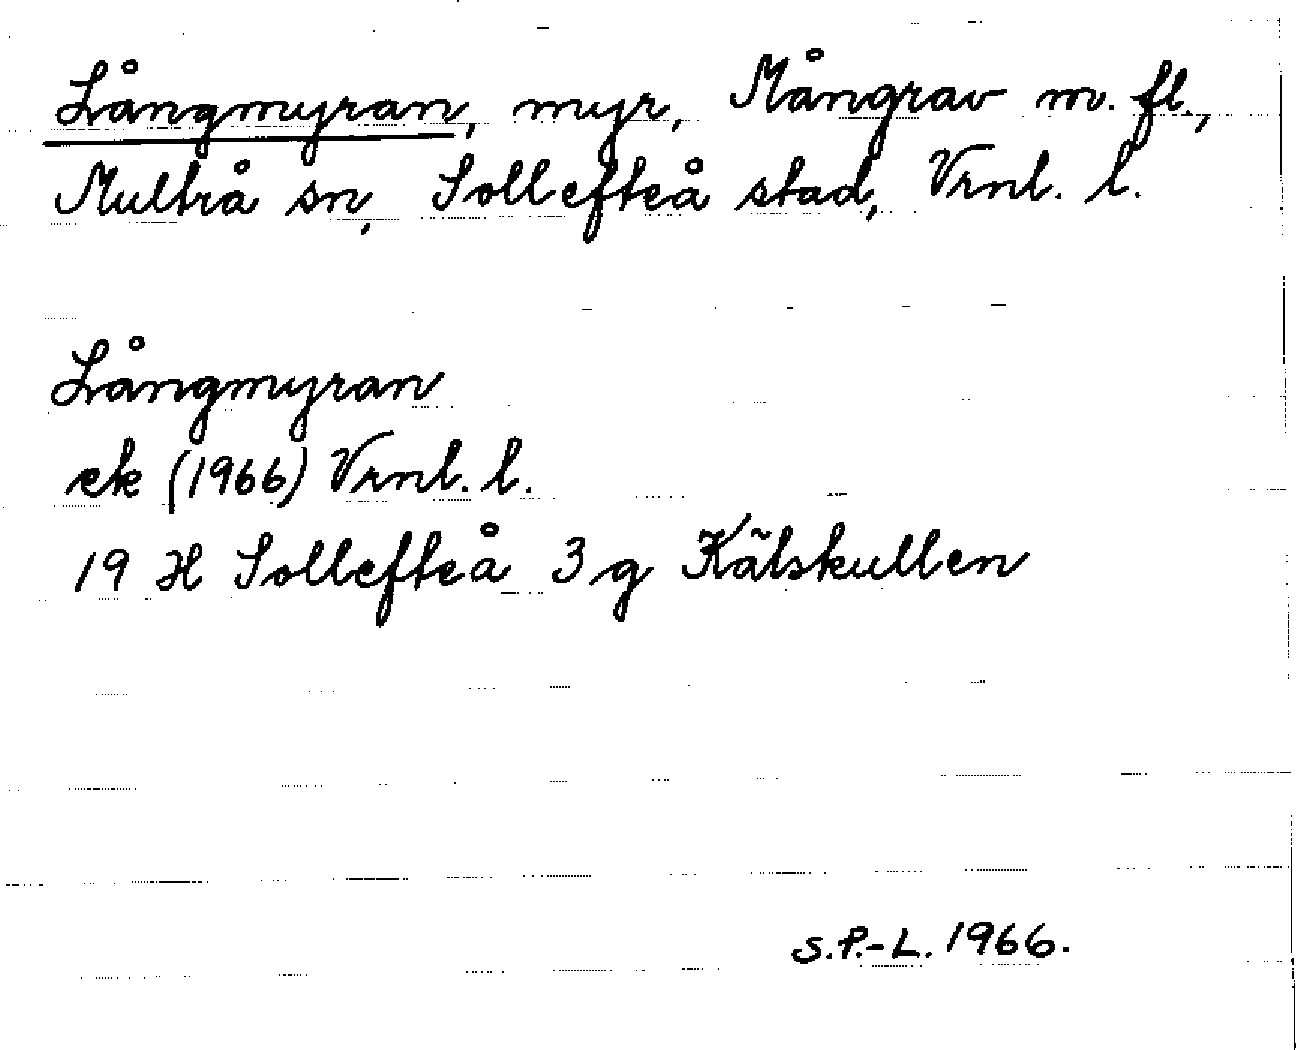 Långmyran, myr, Mångrav m. fl.,
Multrå sn, Sollefteå stad, Vrnl. l.
Långmyran
ek (1966) Vrnl. l.
19 H Sollefteå 3 g Kälskullen
S.P.-L. 1966.